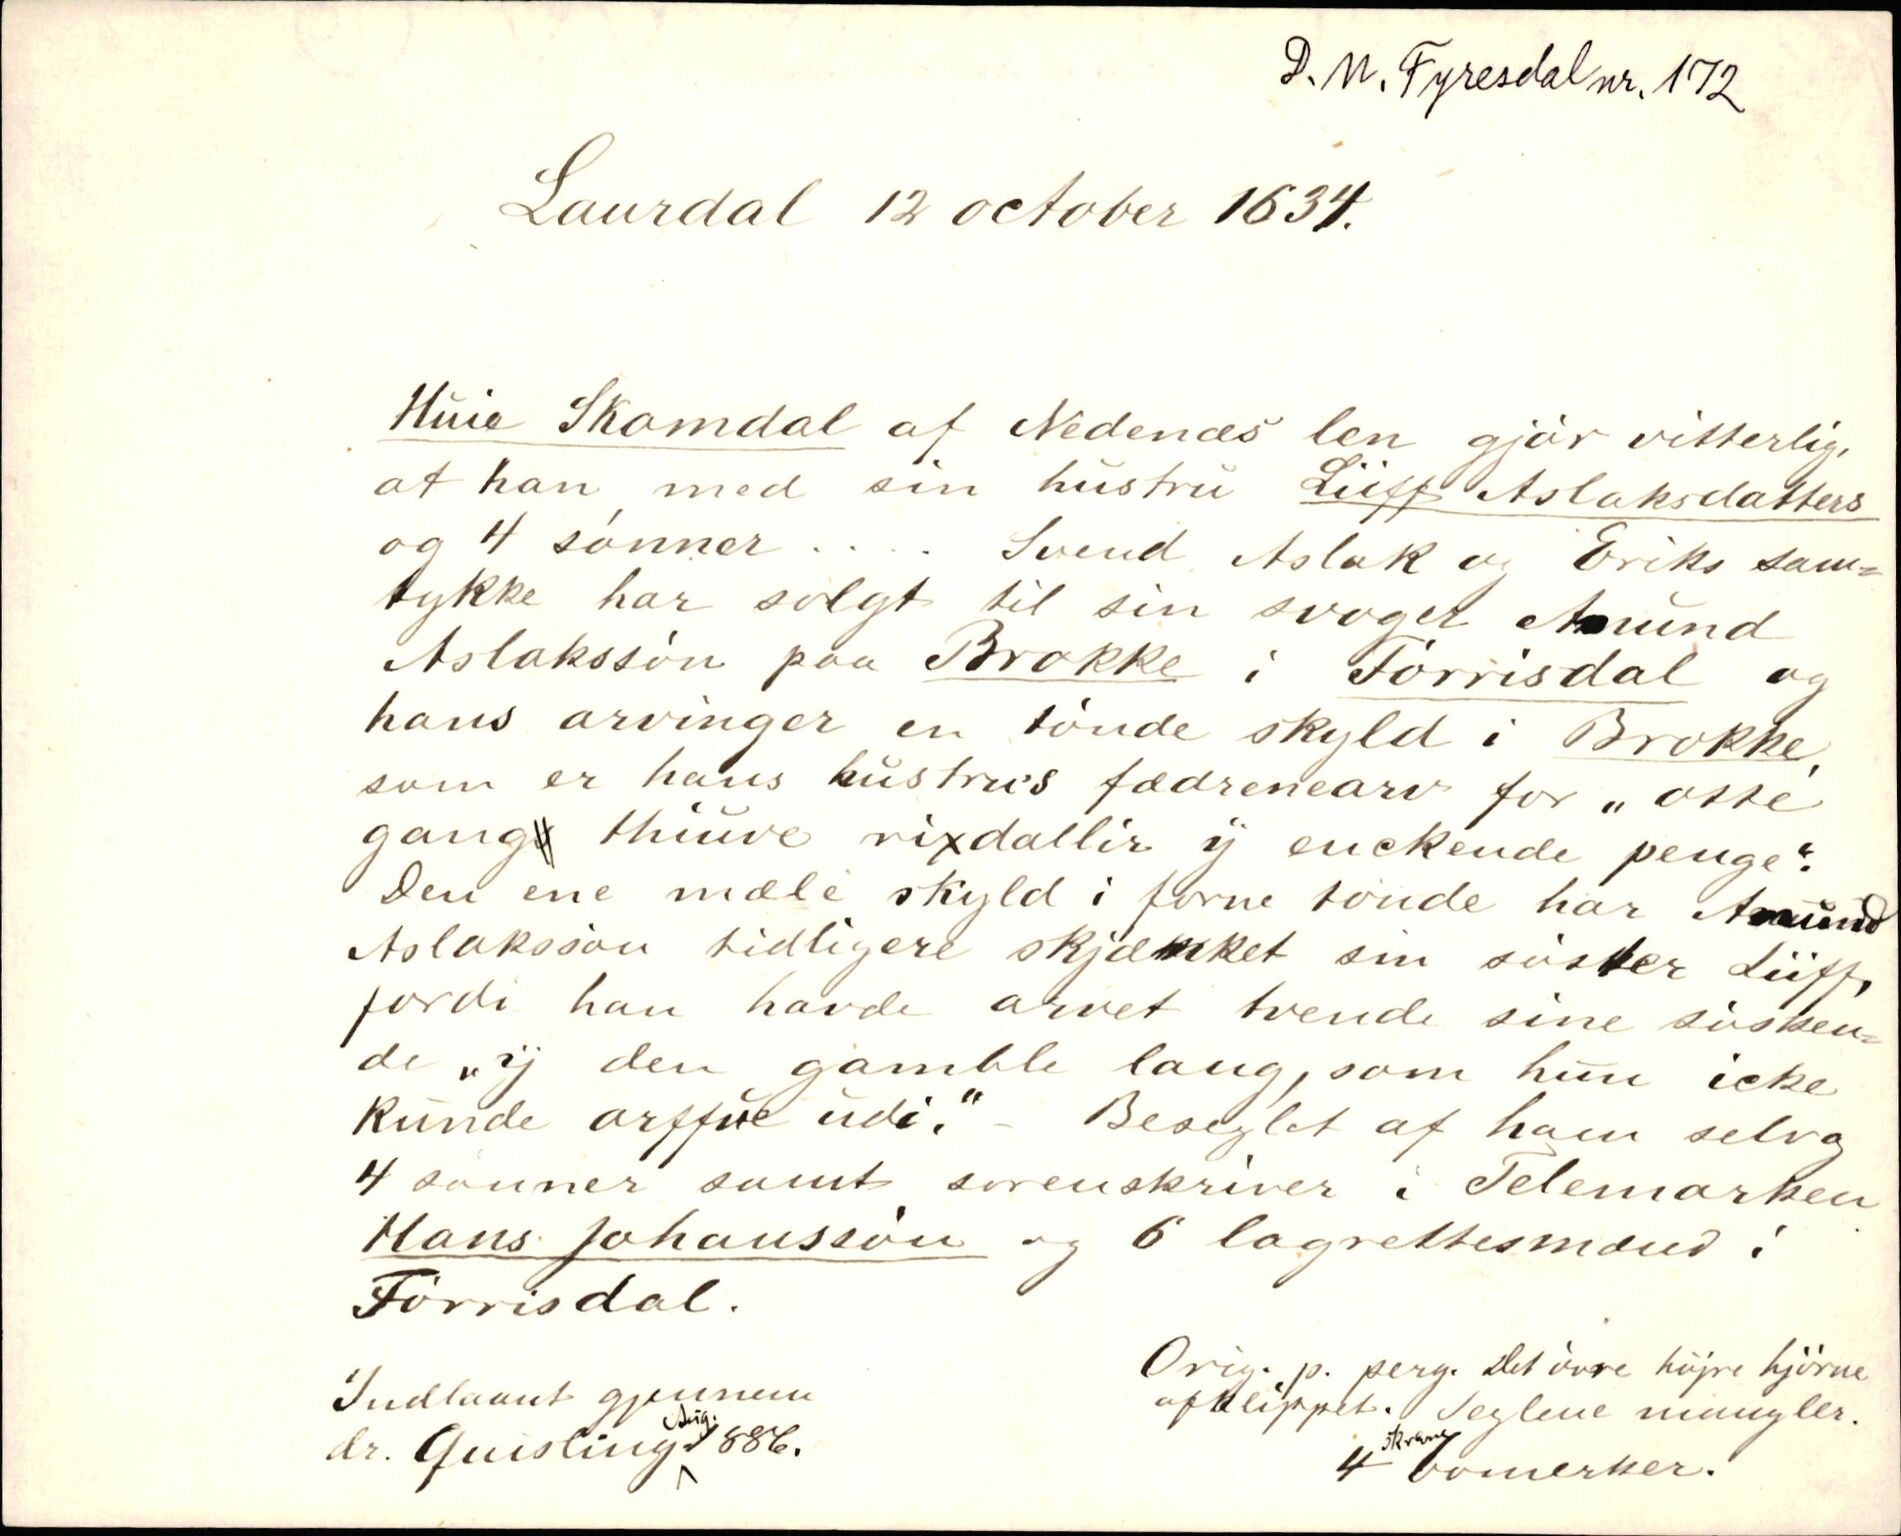 D. N. Fyresdal nr. 172
Laurdal 12 october 1634.
Huie Skomdal af Nedenæs len gjör vitterlig,
at han med sin hustru Liiff Aslaksdatters
og 4 sönner .... Svend Aslak og Eriks sam=
tykke har solgt til sin svoger Amund
Aslakssön paa Brokke i Förrisdal og
hans arvinger en tönde skyld i Brokke,
som er hans hustrus fædrenearv for „otte
gang thiuve rixdallir ÿ enckende penge“.
Den ene mæle skyld i forne tönde har Amund
Aslakssön tidligere skjænket sin söster Liiff,
fordi han havde arvet tvende sine sösken=
de „ÿ den gamble laug, som hun icke
kunde arffue udi.“ – Beseglet af ham selv og
4 sönner samt sorenskriver i Telemarken
Hans Johanssön og 6 lagrettesmænd i
Förrisdal.
Indlaant gjennem
dr. Quisling Aug. 1886.
Orig. p. perg. Det övre höjre hjörne
afklippet. Seglene mangler.
4 skrevne bomerker.